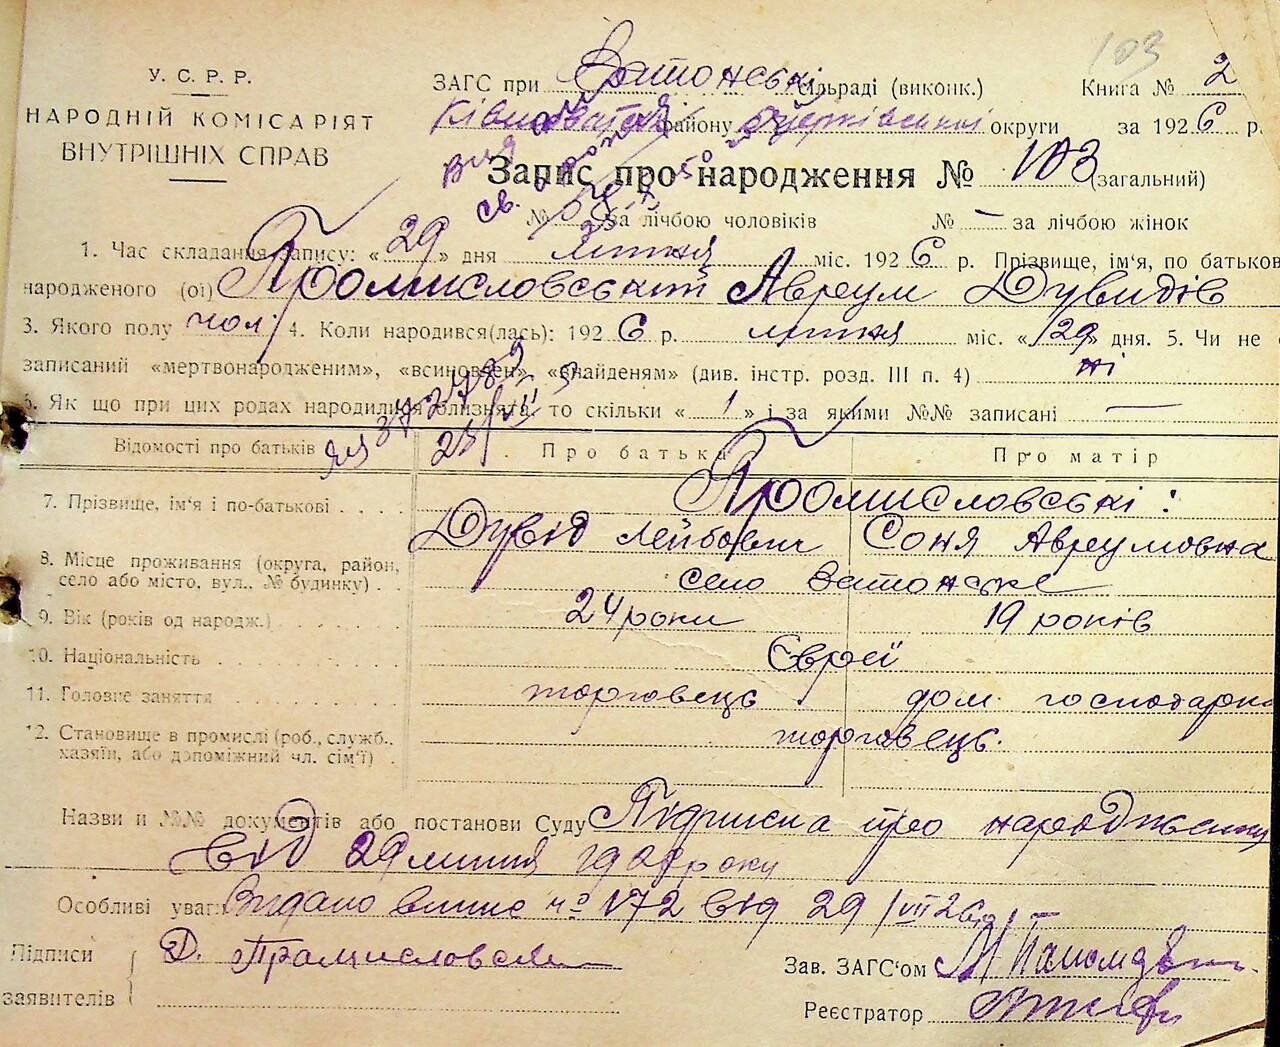 103
У. С. Р. Р.
НАРОДНІЙ КОМІСАРІЯТ
ВНУТРІШНІХ СПРАВ
ЗАГС при Ватонські сільраді (виконк.) Книга № 2
району округи за 1926 р.
Запис про народження № 103 (загальний)
№ 58 за лічбою чоловіків № — за лічбою жінок
1. Час складання запису: «29» дня липня міс. 1926 р. Прізвище, ім'я, по батькові
народженого (ої) Промисловський Авреум Дувидів
3. Якого полу чол. 4. Коли народився(лась): 1926 р. липня міс. «29» дня. 5. Чи не
записаний «мертвонародженим», «всиновлен», «знайденям» (див. інстр. розд. III п. 4) ні
6. Як що при цих родах народилися близнята, то скільки «1» і за якими №№ записані —
Відомості про батьків Про батька Про матір
7. Прізвище, ім'я і по-батькові . . . . Промисловські:
Дувід Лейбович Соня Авреумовна
8. Місце проживання (округа, район,
село або місто, вул., № будинку) . . село Ватонське
9. Вік (років од народж.) 24 роки 19 років
10. Національність Євреї
11. Головне заняття торговець дом. господарка
12. Становище в промислі (роб., служб.,
хазяїн, або допоміжний чл. сім'ї) . торговець.
Назви и №№ документів або постанови Суду Підписка про народження
від 29 липня 1926 року
Особливі уваги Видано випис № 172 від 29/VII 26 р.
Підписи Д. Промисловский
заявителів
Зав. ЗАГС'ом
Реєстратор